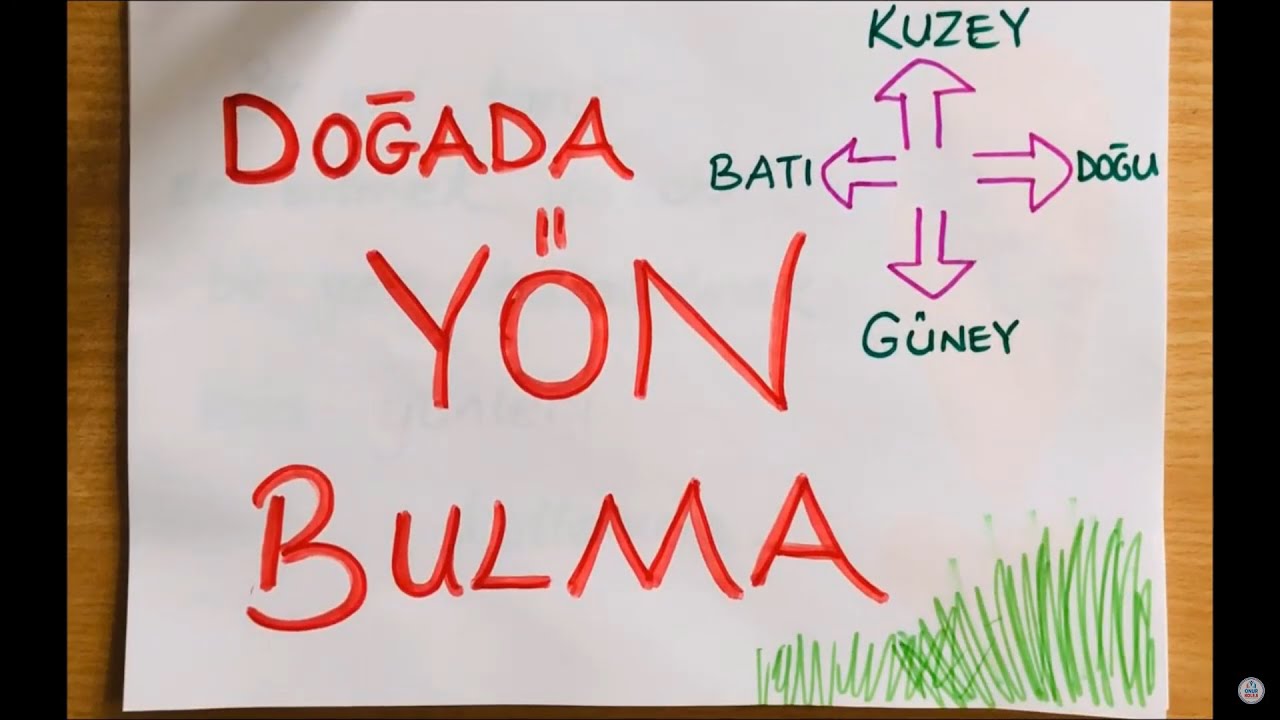 DOĞADA
YÖN
BULMA
KUZEY
BATI
DOĞU
GÜNEY